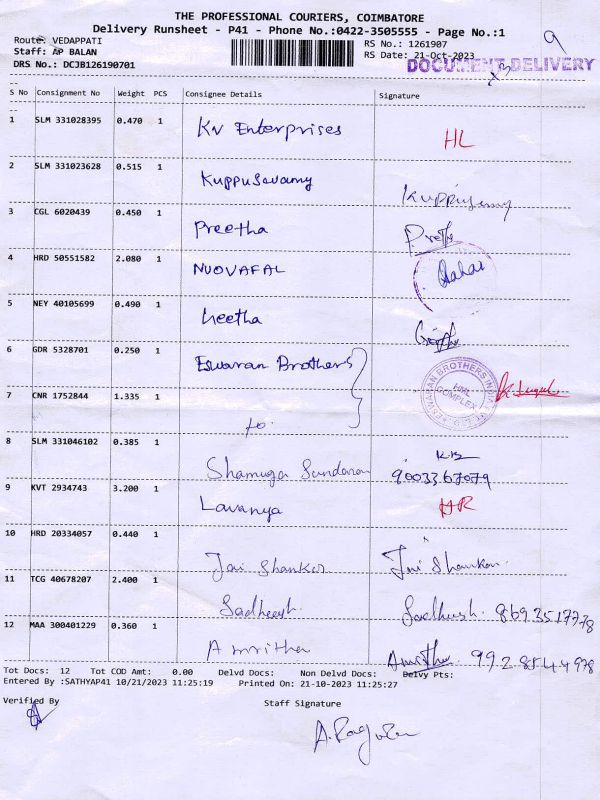 THE PROFESSIONAL COURIERS, COIMBATORE
Delivery Runsheet - P41 - Phone No.:0422-3505555 - Page No.:1
Route: VEDAPPATI
Staff: AP BALAN
DRS No.: DCJB126190701
RS No.: 1261907
RS Date: 21-Oct-2023
9
DOCUMENT DELIVERY
S No Consignment No Weight PCS Consignee Details Signature
1 SLM 331028395 0.470 1 KN Enterprises HL
2 SLM 331023628 0.515 1 Kuppuswamy Kuppuswamy
3 CGL 6020439 0.450 1 Preetha
4 HRD 50551582 2.080 1 NUOVAFAL
5 NEY 40105699 0.490 1 Geetha
6 GDR 5328701 0.250 1 Eswaran Brothers
ESWARAN BROTHERS
HML
COMPLEX
7 CNR 1752844 1.335 1 to
8 SLM 331046102 0.385 1 Shamuga Sundaran 9003367079
9 KVT 2934743 3.200 1 Lavanya HR
10 HRD 20334057 0.440 1 Jai Shankar Jai Shankar
11 TCG 40678207 2.400 1 Sadheesh Sadheesh
12 MAA 300401229 0.360 1 Amritha Amritha
Tot Docs: 12 Tot COD Amt: 0.00 Delvd Docs: Non Delvd Docs: Delvy Pts:
Entered By :SATHYAP41 10/21/2023 11:25:19 Printed On: 21-10-2023 11:25:27
Verified By Staff Signature